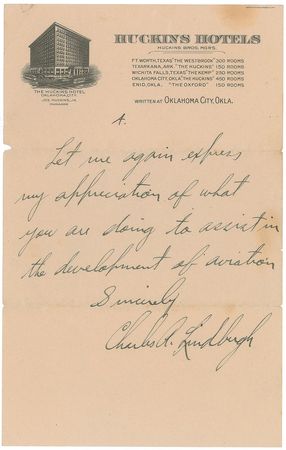 HUCKINS HOTELS
HUCKINS BROS., MGRS.
FT. WORTH, TEXAS "THE WESTBROOK" 300 ROOMS
TEXARKANA, ARK. "THE HUCKINS" 150 ROOMS
WICHITA FALLS, TEXAS "THE KEMP" 230 ROOMS
OKLAHOMA CITY, OKLA. "THE HUCKINS" 450 ROOMS
ENID, OKLA. "THE OXFORD" 150 ROOMS
THE HUCKINS HOTEL
OKLAHOMA CITY
JOS. HUCKINS, JR.
MANAGER
WRITTEN AT OKLAHOMA CITY, OKLA.
4.
Let me again express
my appreciation of what
you are doing to assist in
the development of aviation
Sincerely
Charles A. Lindbergh